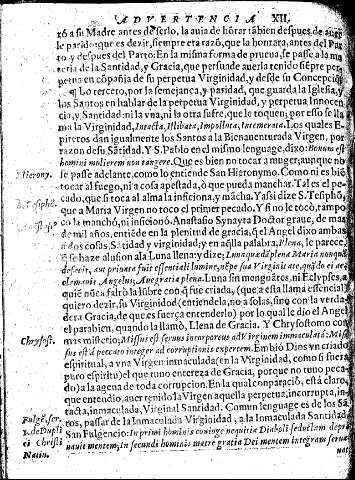 ADVERTENCIA XII.
rò a su Madre antes de serlo, la auia de hõrar tãbien despues de auer
le parido: que es dezir, siempre eta razõ, que la honrara, antes del Par
to y despues del Parto: En la misma forma de prueua, se passe a la ma
teria de la Santidad, y Gracia, que persuade auerla tenido siẽpre per
petua en cõpañia de su perpetua Virginidad, y desde su Concepciõ
¶ Lo tercero, por la semejança, y paridad, que guarda la Iglesia, y
los Santos en hablar de la perpetua Virginidad, y perpetua Innocen
cia, y Santidad: ni la vna, ni la otra sufre, que le toquen; por esso se lla
ma la Virginidad, Intacta, Illibata, Impolluta, Intemerata. Los quales E-
pitetos dan igualmente los Santos a la Bienauenturada Virgen, por
razon de su Sãtidad. Y S. Pablo en el mismo lenguage, dixo: Bonum est
homini mulierem non tangere. Que es bien no tocar a muger; aunque no
Hierony. se passe adelante, como lo entiende San Hieronymo. Como ni es biẽ
tocar al fuego, ni a cosa apestada, ò que pueda manchar. Tal es el pe-
cado, que si toca al alma la inficiona, y mãcha. Y assi dize S. Tesiphõ,
S. Tesiphõ. que a Maria Virgen no toco el primer pecado. Y si no le tocò, tampo
co la manchò, ni inficionò. Anastasio Synayta Doctor graue, de mas
de mil años, entiẽde en la plenitud de gracia, q̃ el Angel dixo ambas
a dos cosas, Sãtidad y virginidad; y en aq̃lla palabra, Plena, le parece,
q̃ se haze alusion a la Luna llena; y dize: Luna quadã plena Maria nunquã
deficit, aut priuata fuit essentiali lumine, nẽpe sua Virginitate, quãdo ei ac-
clamauit Angelus; Aue gratia plena. Luna sin menguãtes, ni Eclypses, a
quiẽ nũca faltò la lũbre con q̃ fue criada, (que a esta llama essencial)
quiero dezir, su Virginidod (entiendela, no a solas, sino con la verda-
dera Gracia, de que es fuerça entenderlo) por lo qual le dio el Angel
el parabien, quando la llamò, Llena de Gracia. Y Chrysostomo con
Chrysost. mas misterio; Missus est seruus incorporeus ad Virginem immaculatã: Mis
sus est à peccato integer ad corruptionis expertem. Embiò Dios vn criado
espiritual, a vna Virgen inmaculada (en la Virginidad, como si fuera
puro espiritu) el que nuno entereza de Gracia, porque no tuuo peca-
do) a la agena de toda corrupcion. En la qual conparaciõ, està claro,
que entendio, auer tenido la Virgen aquella perpetua, incorrupta, in-
tacta, inmaculada, Virginal Santidad. Comun lenguage es de los Sã-
Fulgẽ. ser. tos, passar de la Inmaculada Virginidad, a la Inmaculada Santidad.
2. de Dupli San Fulgencio: In primi hominis coniuge nequitia Diaboli seductam depra
ci Christi uauit mentem, in secundi hominis matre gratia Dei mentem integram serua
Natiu.